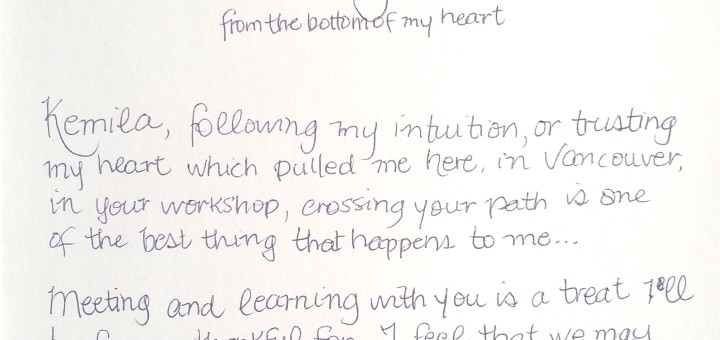 from the bottom of my heart
Kemila, following my intuition, or trusting
my heart which pulled me here, in Vancouver,
in your workshop, crossing your path is one
of the best thing that happens to me...
Meeting and learning with you is a treat I'll
for. I feel that we may